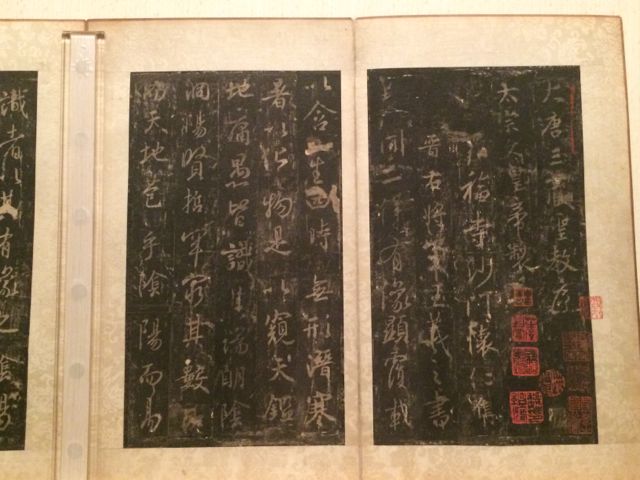 大唐三藏聖教序
太宗文皇帝製
弘福寺沙門懷仁集
晉右將軍王羲之書
蓋聞二儀有像顯覆載
以含生四時無形潛寒
暑以化物是以窺天鑑
地庸愚皆識其端明陰
洞陽賢哲罕窮其數然
而天地苞乎陰陽而易
識者以其有像也陰陽